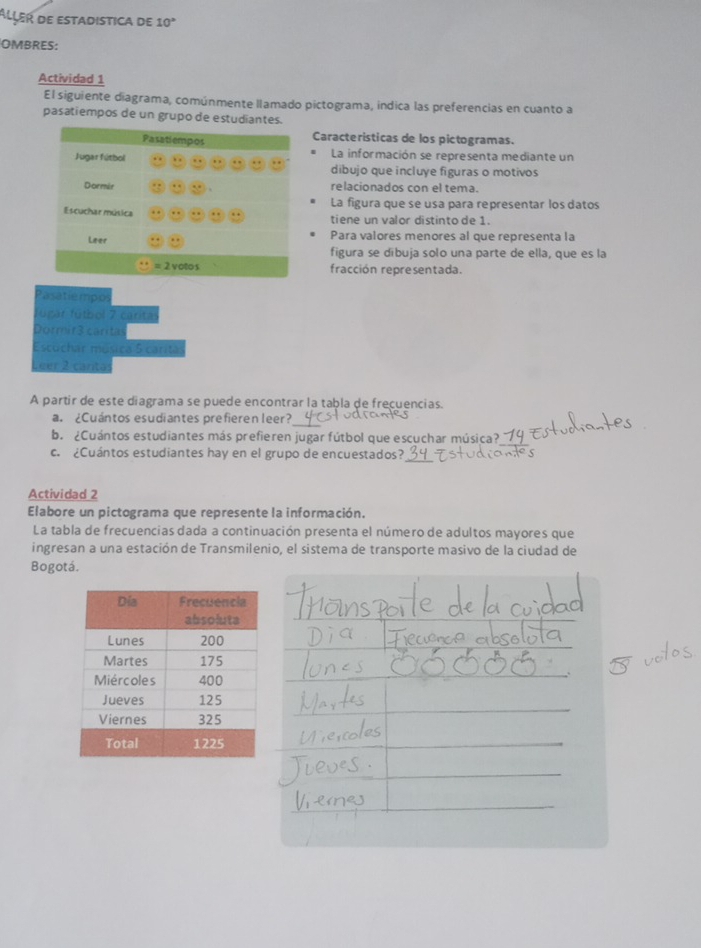 ALLER DE ESTADISTICA DE 10°
OMBRES:
Actividad 1
El siguiente diagrama, comúnmente llamado pictograma, indica las preferencias en cuanto a
pasatiempos de un grupo de estudiantes.
Pasatiempos
Jugar fútbol
Dormir
Escuchar música
Leer
= 2 votos
Características de los pictogramas.
▪ La información se representa mediante un
dibujo que incluye figuras o motivos
relacionados con el tema.
▪ La figura que se usa para representar los datos
tiene un valor distinto de 1.
▪ Para valores menores al que representa la
figura se dibuja solo una parte de ella, que es la
fracción representada.
Pasatiempos
Jugar fútbol 7 caritas
Dormir 3 caritas
Escuchar música 5 caritas
Leer 2 caritas
A partir de este diagrama se puede encontrar la tabla de frecuencias.
a. ¿Cuántos esudiantes prefieren leer? 4 estudiantes
b. ¿Cuántos estudiantes más prefieren jugar fútbol que escuchar música? 14 Estudiantes
c. ¿Cuántos estudiantes hay en el grupo de encuestados? 34 Estudiantes
Actividad 2
Elabore un pictograma que represente la información.
La tabla de frecuencias dada a continuación presenta el número de adultos mayores que
ingresan a una estación de Transmilenio, el sistema de transporte masivo de la ciudad de
Bogotá.
Día Frecuencia absoluta
Lunes 200
Martes 175
Miércoles 400
Jueves 125
Viernes 325
Total 1225
Transporte de la cuidad
Dia Frecuence absolota
lunes
5 votos
Martes
Miercoles
Jueves.
Viernes